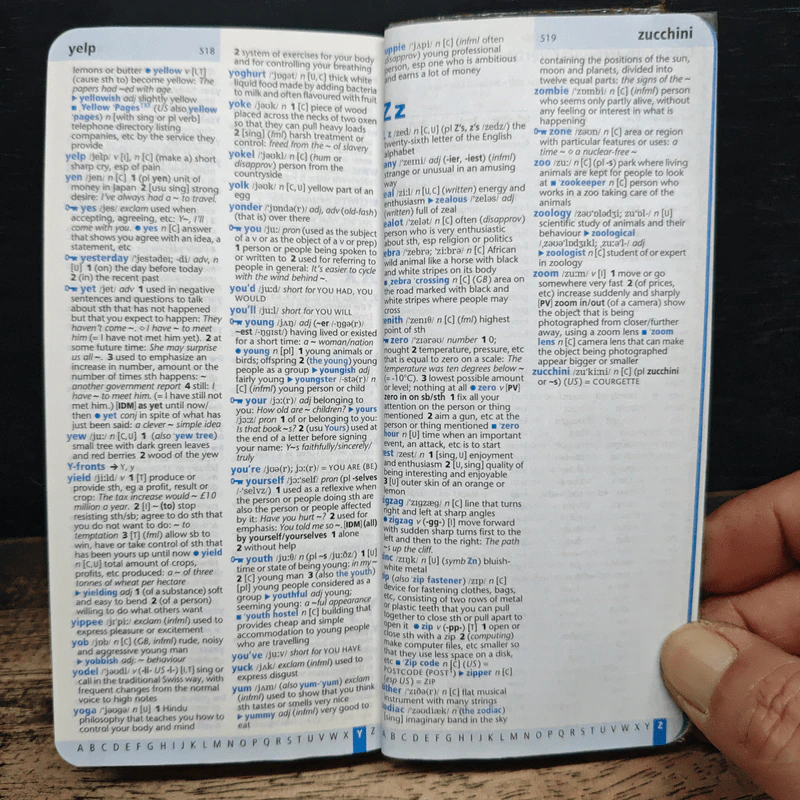 yelp
518
lemons or butter ● yellow v [I,T]
(cause sth to) become yellow: The
papers had ~ed with age.
▶ yellowish adj slightly yellow
■ Yellow 'Pages™ (US also yellow
pages) n [with sing or pl verb]
telephone directory listing
companies, etc by the service they
provide
yelp /jelp/ v [I], n [C] (make a) short
sharp cry, esp of pain
yen /jen/ n [C] 1 (pl yen) unit of
money in Japan 2 [usu sing] strong
desire: I've always had a ~ to travel.
yes /jes/ exclam used when
accepting, agreeing, etc: Y~, I'll
come with you. ● yes n [C] answer
that shows you agree with an idea, a
statement, etc
yesterday /'jestədeɪ; -di/ adv, n
[U] 1 (on) the day before today
2 (in) the recent past
yet /jet/ adv 1 used in negative
sentences and questions to talk
about sth that has not happened
but that you expect to happen: They
haven't come ~. ◇ I have ~ to meet
him (= I have not met him yet). 2 at
some future time: She may surprise
us all ~. 3 used to emphasize an
increase in number, amount or the
number of times sth happens: ~
another government report 4 still: I
have ~ to meet him. (= I have still not
met him.) [IDM] as yet until now/
then ● yet conj in spite of what has
just been said: a clever ~ simple idea
yew /juː/ n [C,U] 1 (also 'yew tree)
small tree with dark green leaves
and red berries 2 wood of the yew
Y-fronts → Y, y
yield /jiːld/ v 1 [T] produce or
provide sth, eg a profit, result or
crop: The tax increase would ~ £10
million a year. 2 [I] ~ (to) stop
resisting sth/sb; agree to do sth that
you do not want to do: ~ to
temptation 3 [T] (fml) allow sb to
win, have or take control of sth that
has been yours up until now ● yield
n [C,U] total amount of crops,
profits, etc produced: a ~ of three
tonnes of wheat per hectare
▶ yielding adj 1 (of a substance) soft
and easy to bend 2 (of a person)
willing to do what others want
yippee /jɪ'piː/ exclam (infml) used to
express pleasure or excitement
yob /jɒb/ n [C] (GB, infml) rude, noisy
and aggressive young man
▶ yobbish adj: ~ behaviour
yodel /'jəʊdl/ v (-ll- US -l-) [I,T] sing or
call in the traditional Swiss way, with
frequent changes from the normal
voice to high notes
yoga /'jəʊɡə/ n [U] 1 Hindu
philosophy that teaches you how to
control your body and mind
2 system of exercises for your body
and for controlling your breathing
yoghurt /'jɒɡət/ n [U,C] thick white
liquid food made by adding bacteria
to milk and often flavoured with fruit
yoke /jəʊk/ n 1 [C] piece of wood
placed across the necks of two oxen
so that they can pull heavy loads
2 [sing] (fml) harsh treatment or
control: freed from the ~ of slavery
yokel /'jəʊkl/ n [C] (hum or
disapprov) person from the
countryside
yolk /jəʊk/ n [C,U] yellow part of an
egg
yonder /'jɒndə(r)/ adj, adv (old-fash)
(that is) over there
you /juː/ pron (used as the subject
of a v or as the object of a v or prep)
1 person or people being spoken to
or written to 2 used for referring to
people in general: It's easier to cycle
with the wind behind ~.
you'd /juːd/ short for YOU HAD, YOU
WOULD
you'll /juːl/ short for YOU WILL
young /jʌŋ/ adj (~er /-ŋɡə(r)/
~est /-ŋɡɪst/) having lived or existed
for a short time: a ~ woman/nation
● young n [pl] 1 young animals or
birds; offspring 2 (the young) young
people as a group ▶ youngish adj
fairly young ▶ youngster /-stə(r)/ n
[C] (infml) young person or child
your /jɔː(r)/ adj belonging to
you: How old are ~ children? ▶ yours
/jɔːz/ pron 1 of or belonging to you:
Is that book ~s? 2 (usu Yours) used at
the end of a letter before signing
your name: Y~s faithfully/sincerely/
truly
you're /jʊə(r); jɔː(r)/ = YOU ARE (BE)
yourself /jɔː'self/ pron (pl -selves
/-'selvz/) 1 used as a reflexive when
the person or people doing sth are
also the person or people affected
by it: Have you hurt ~? 2 used for
emphasis: You told me so ~. [IDM] (all)
by yourself/yourselves 1 alone
2 without help
youth /juːθ/ n (pl ~s /juːðz/) 1 [U]
time or state of being young: in my ~
2 [C] young man 3 (also the youth)
[pl] young people considered as a
group ▶ youthful adj young;
seeming young: a ~ful appearance
■ 'youth hostel n [C] building that
provides cheap and simple
accommodation to young people
who are travelling
you've /juːv/ short for YOU HAVE
yuck /jʌk/ exclam (infml) used to
express disgust
yum /jʌm/ (also yum-'yum) exclam
(infml) used to show that you think
sth tastes or smells very nice
▶ yummy adj (infml) very good to
eat
A B C D E F G H I J K L M N O P Q R S T U V W X Y Z
519
zucchini
uppie /'jʌpi/ n [C] (infml often
disapprov) young professional
person, esp one who is ambitious
and earns a lot of money
Zz
, z /zed/ n [C,U] (pl Z's, z's /zedz/) the
twenty-sixth letter of the English
alphabet
any /'zeɪni/ adj (-ier, -iest) (infml)
strange or unusual in an amusing
way
eal /ziːl/ n [U,C] (written) energy and
enthusiasm ▶ zealous /'zeləs/ adj
(written) full of zeal
ealot /'zelət/ n [C] often (disapprov)
person who is very enthusiastic
about sth, esp religion or politics
ebra /'zebrə; 'ziːbrə/ n [C] African
wild animal like a horse with black
and white stripes on its body
■ zebra 'crossing n [C] (GB) area on
the road marked with black and
white stripes where people may
cross
enith /'zenɪθ/ n [C] (fml) highest
point of sth
zero /'zɪərəʊ/ number 1 0;
nought 2 temperature, pressure, etc
that is equal to zero on a scale: The
temperature was ten degrees below ~
(= -10°C). 3 lowest possible amount
or level; nothing at all ● zero v [PV]
zero in on sb/sth 1 fix all your
attention on the person or thing
mentioned 2 aim a gun, etc at the
person or thing mentioned ■ 'zero
hour n [U] time when an important
event, an attack, etc is to start
est /zest/ n 1 [sing,U] enjoyment
and enthusiasm 2 [U,sing] quality of
being interesting and enjoyable
3 [U] outer skin of an orange or
lemon
igzag /'zɪɡzæɡ/ n [C] line that turns
right and left at sharp angles
● zigzag v (-gg-) [I] move forward
with sudden sharp turns first to the
left and then to the right: The path
~s up the cliff.
inc /zɪŋk/ n [U] (symb Zn) bluish-
white metal
ip (also 'zip fastener) /zɪp/ n [C]
device for fastening clothes, bags,
etc, consisting of two rows of metal
or plastic teeth that you can pull
together to close sth or pull apart to
open it ● zip v (-pp-) [T] 1 open or
close sth with a zip 2 (computing)
make computer files, etc smaller so
that they use less space on a disk,
etc ■ 'Zip code n [C] (US) =
POSTCODE (POST¹) ▶ zipper n [C]
(esp US) = ZIP
ither /'zɪðə(r)/ n [C] flat musical
instrument with many strings
odiac /'zəʊdiæk/ n (the zodiac)
[sing] imaginary band in the sky
containing the positions of the sun,
moon and planets, divided into
twelve equal parts: the signs of the ~
zombie /'zɒmbi/ n [C] (infml) person
who seems only partly alive, without
any feeling or interest in what is
happening
zone /zəʊn/ n [C] area or region
with particular features or uses: a
time ~ ◇ a nuclear-free ~
zoo /zuː/ n [C] (pl ~s) park where living
animals are kept for people to look
at ■ zookeeper n [C] person who
works in a zoo taking care of the
animals
zoology /zəʊ'ɒlədʒi; zu'ɒl-/ n [U]
scientific study of animals and their
behaviour ▶ zoological
/ˌzəʊə'lɒdʒɪkl; ˌzuːə'l-/ adj
▶ zoologist n [C] student of or expert
in zoology
zoom /zuːm/ v [I] 1 move or go
somewhere very fast 2 (of prices,
etc) increase suddenly and sharply
[PV] zoom in/out (of a camera) show
the object that is being
photographed from closer/further
away, using a zoom lens ■ 'zoom
lens n [C] camera lens that can make
the object being photographed
appear bigger or smaller
zucchini /zu'kiːni/ n [C] (pl zucchini
or ~s) (US) = COURGETTE
A B C D E F G H I J K L M N O P Q R S T U V W X Y Z